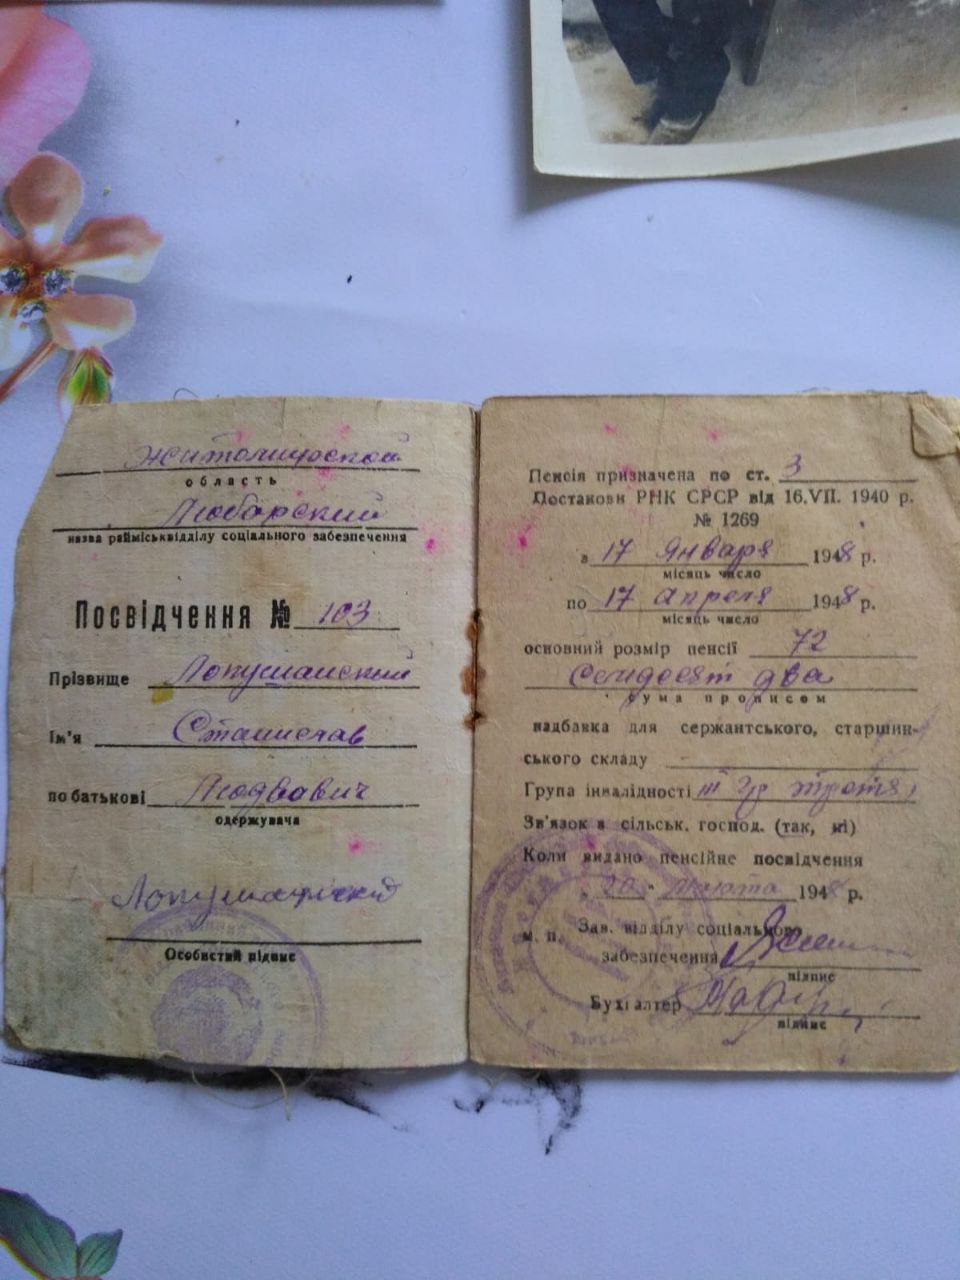 Житомирской
область
Любарский
назва райміськвідділу соціального забезпечення
Посвідчення № 103
Прізвище Лопушанский
Ім'я Станислав
по батькові Людвович
одержувача
Лопушанский
Особистий підпис
Пенсія призначена по ст. 3
Постанови РНК СРСР від 16.VII. 1940 р.
№ 1269
з 17 января 1948 р.
місяць число
по 17 апреля 1948 р.
місяць число
основний розмір пенсії 72
семдесят два
сума прописом
надбавка для сержантського, старшин-
ського складу
Група інвалідності III гр третя
Зв'язок з сільськ. господ. (так, ні)
Коли видано пенсійне посвідчення
"20" люта 1948 р.
м. п.
Зав. відділу соціального
забезпечення
підпис
Бухгалтер
підпис